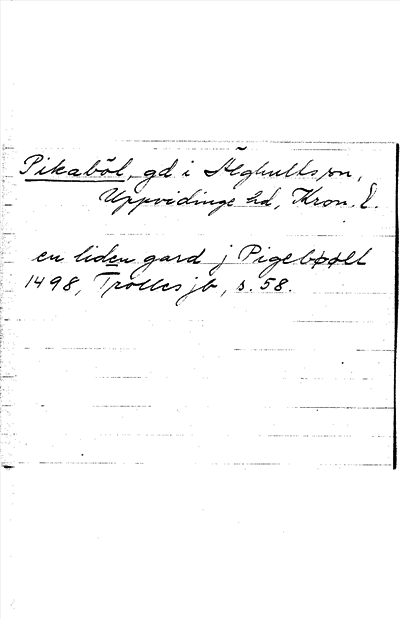 Pikaböl, gd i Älghults sn,
Uppvidinge hd, Kron. l.
en liden gard j Pigebøølt
1498, Trolles jb, s. 58.